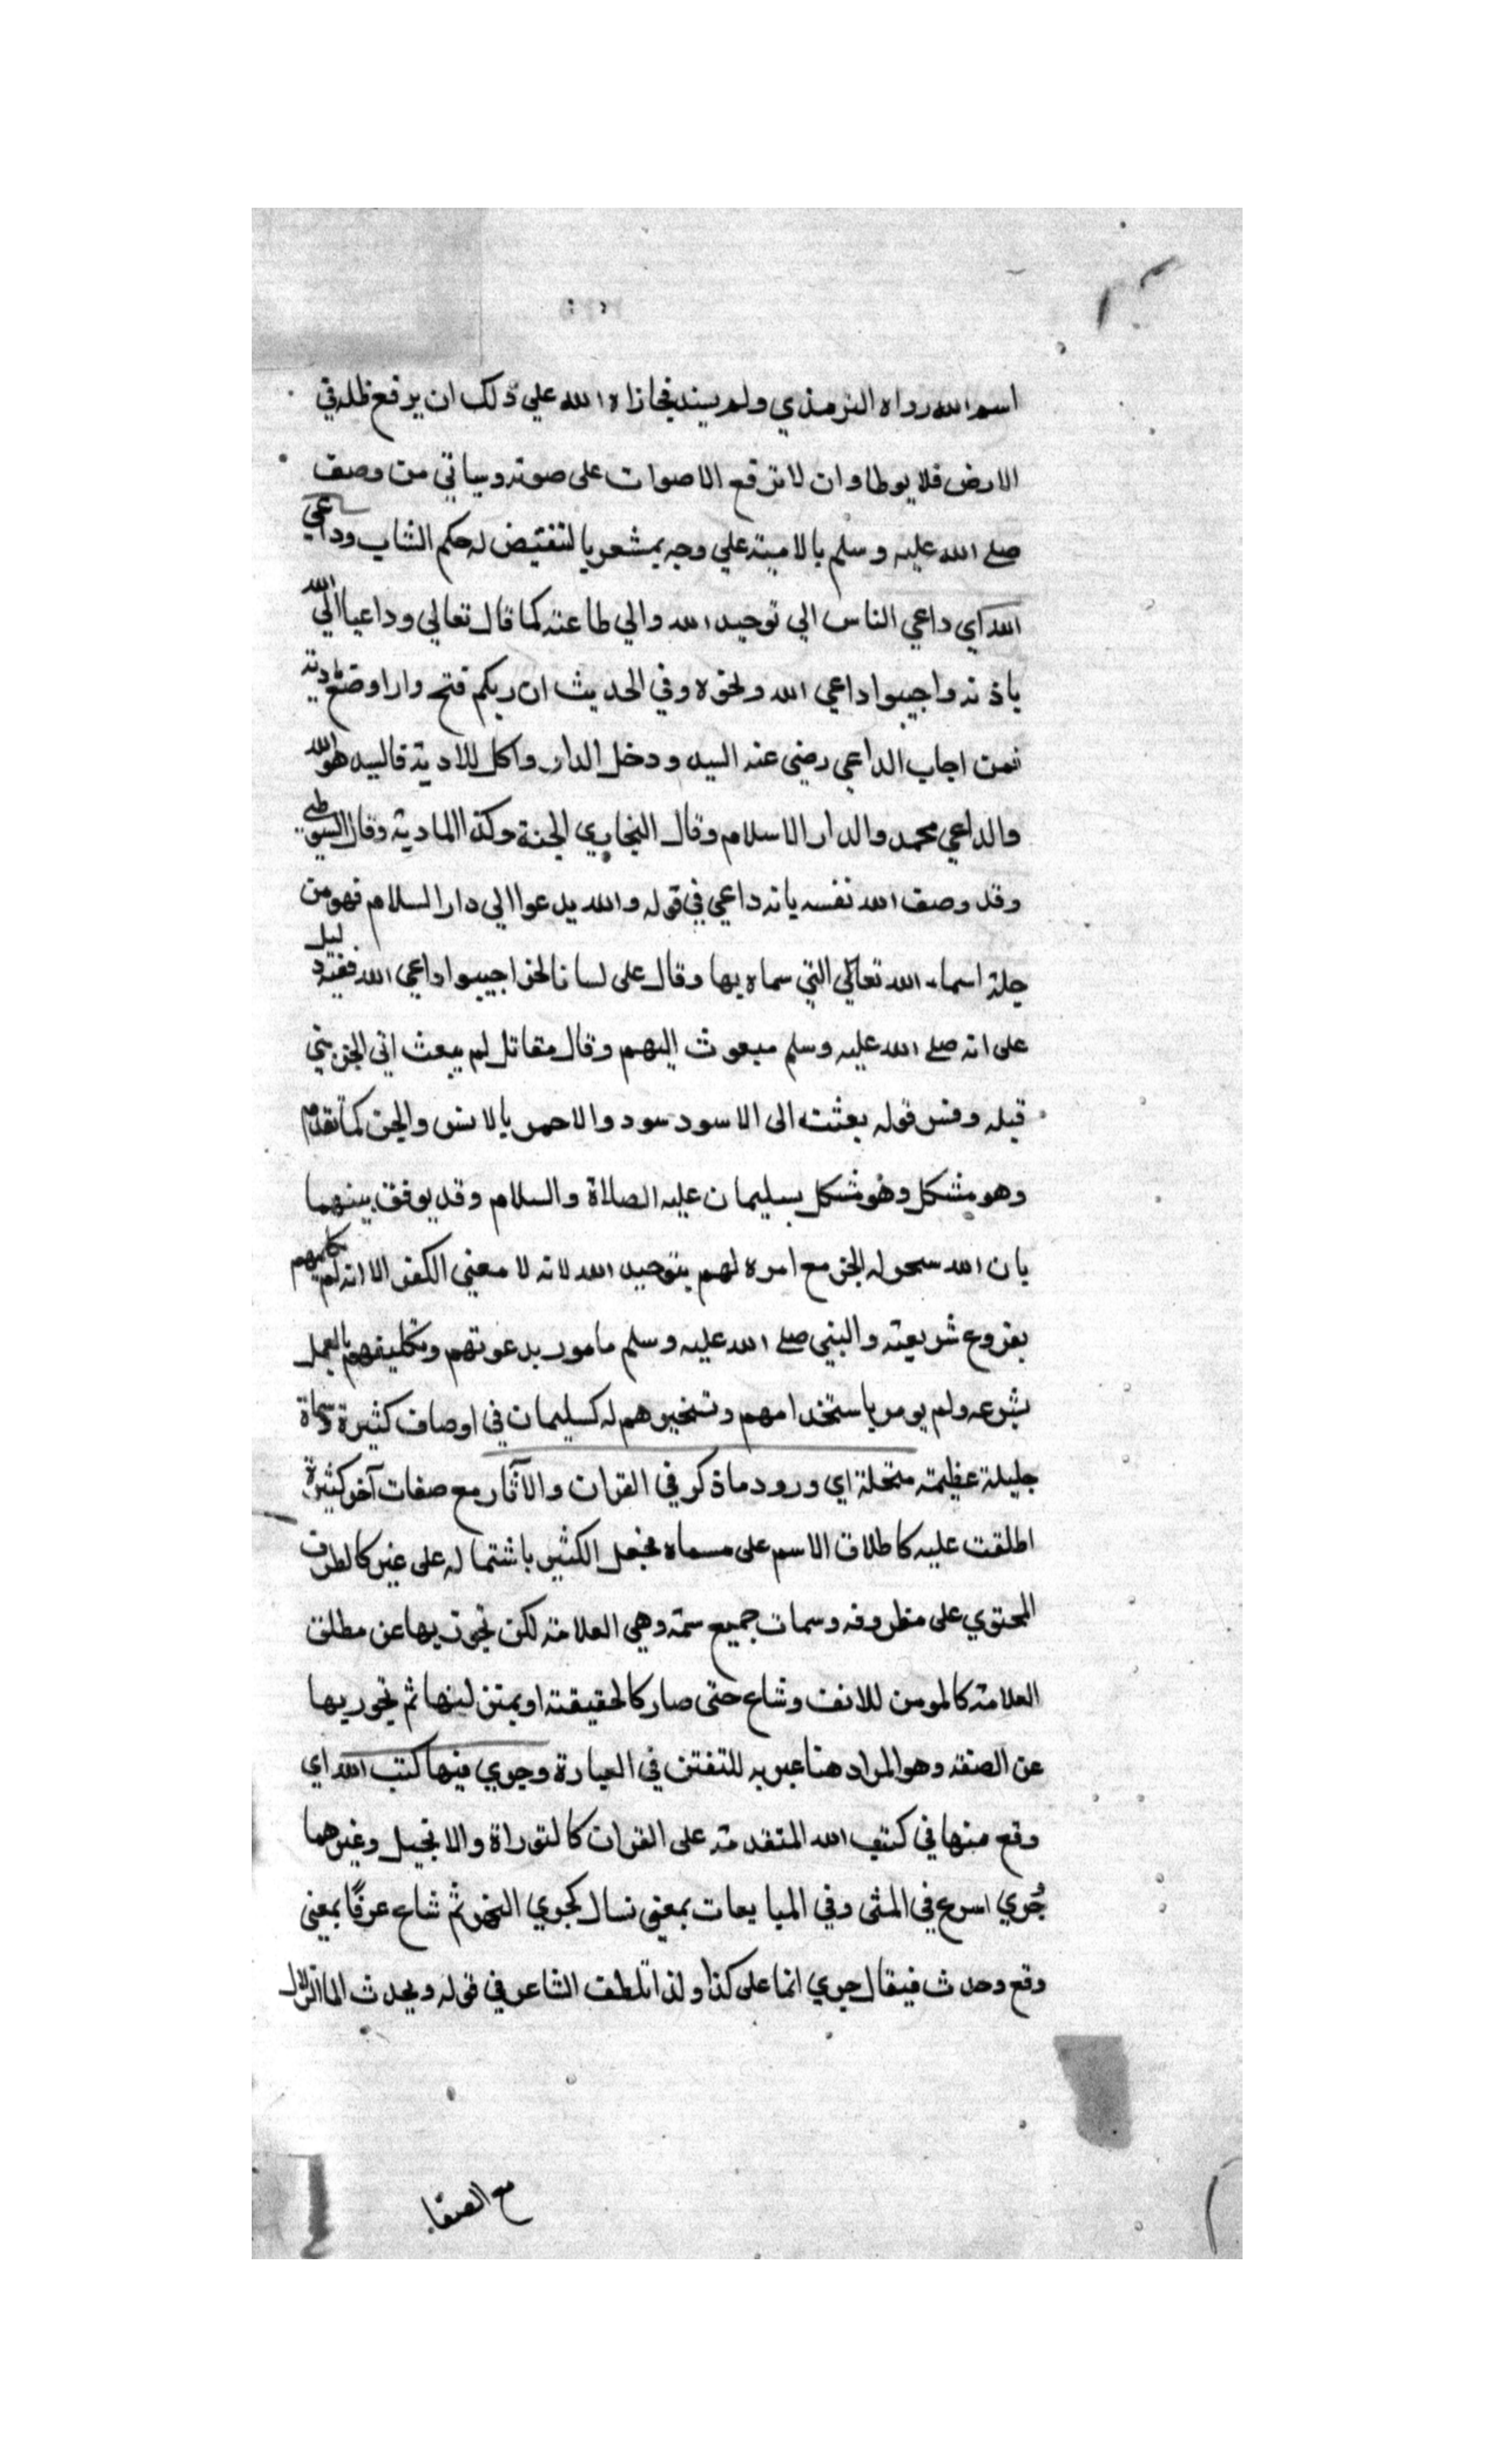 اسم الله رواه الترمذي ولم يسند فجازاه الله علي ذلك ان يرفع ظله في
الارض فلا يوطا وان لا ترفع الاصوات على صوته وسياتي من وصف
صلے الله عليه وسلم بالامية علي وجه يمشعر بالتفتيض له حكم الشاب وداعي
الله اي داعي الناس الي توحيد الله والي طاعته كما قال تعالي وداعيا الي الله
باذنه واجيبوا داعي الله ونحوه وفي الحديث ان ربكم فتح دارا وصنع
فمن اجاب الداعي رضي عنه السيد ودخل الدار واكل للادية فالسيد هو الله
والداعي محمد والدار الاسلام وقال البخاري الجنة وكذا المادية وقال السيوطي
وقد وصف الله نفسه بانه داعي في قوله والله يدعوا الي دار السلام فهو من
جلة اسماء الله تعالي التي سماه بها وقال على لسان الجن اجيبوا داعي الله ففيه دليل
على انه صلے الله عليه وسلم مبعوث اليهم وقال مقاتل لم يبعث الي الجن نبي
قبله وفسر قوله بعثت الى الاسود سود والاحمر بالانس والجن كما تقدم
وهو مشكل وهو مشكل بسليمان عليه الصلاة والسلام وقد يوفق بينهما
بان الله سخر له الجن مع امره لهم بتوحيد الله لانه لا معني الكفر الا انه لم يكلفهم
بفروع شريعته والنبي صلے الله عليه وسلم مامور بدعوتهم وتكليفهم بالعمل
بشرعه ولم يومر باستخدامهم وتسخيرهم له كسليمان في اوصاف كثيرة وسماة
جليلة عظيمة متحلة اي ورود ما ذكر في القران والآثار مع صفات آخر كثيرة
اطلقت عليه كاطلاق الاسم على مسماه فجعل الكثير باشتماله على غير كالظرف
المحتوي على مظروفه وسمات جميع سمة وهي العلامة لكن تجوز بها عن مطلق
العلامة كالمومن للانف وشاع حتى صار كالحقيقة او ثم تجوز بها
عن الصفة وهو المراد هنا عبر به للتفنن في العبارة وجري منها كتب الله اي
وقع منها في كتب الله المتقدمة على القران كالتوراة والانجيل وغيرهما
جُري اسرع في المشى وفي المبايعات بمعني نسال كجري النهر ثم شاع عرفًا بمعني
وقع وحدث فيقال جري انما على كذا ولذا تلطف الشاعر في قوله ويحدث الما الزلال
مع الصفا